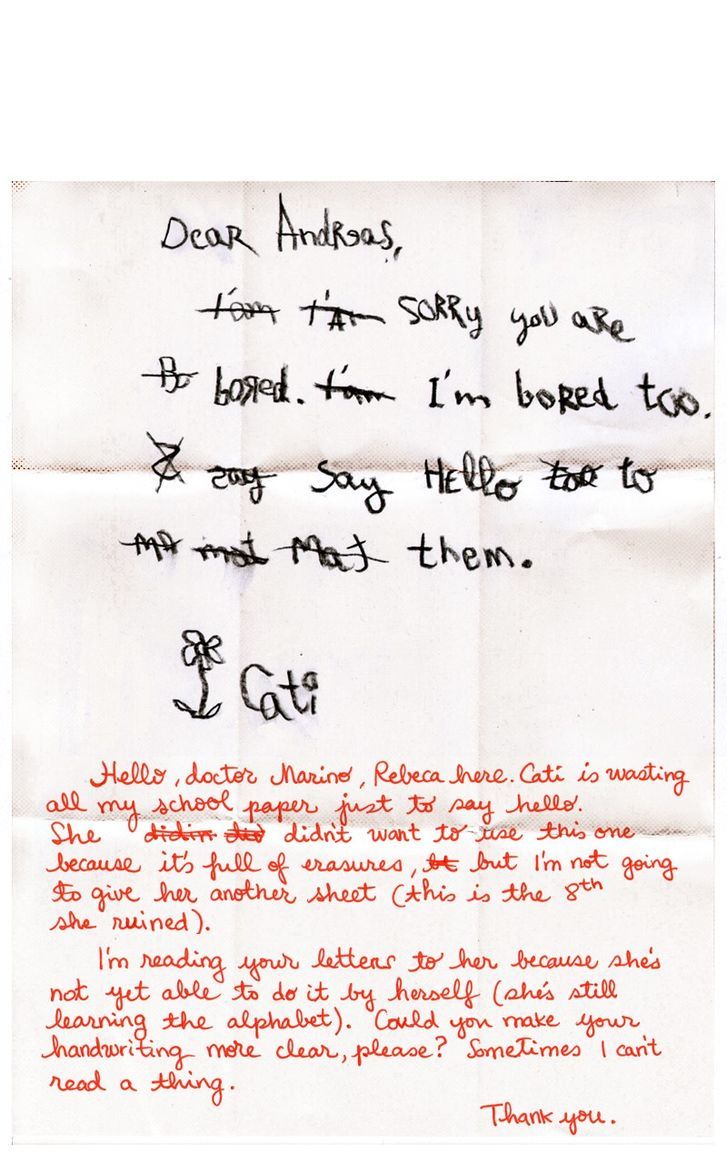 Dear Andreas,
I'am I'Am SORRY you are
Bo bored. I'am I'm bored too.
Z zay Say Hello too to
MA mat Mat them.
Cati
Hello, doctor Marino, Rebeca here. Cati is wasting
all my school paper just to say hello.
She didin did didn't want to use this one
because it's full of erasures, bt but I'm not going
to give her another sheet (this is the 8th
she ruined).
I'm reading your letters to her because she's
not yet able to do it by herself (she's still
learning the alphabet). Could you make your
handwriting more clear, please? Sometimes I can't
read a thing.
Thank you.